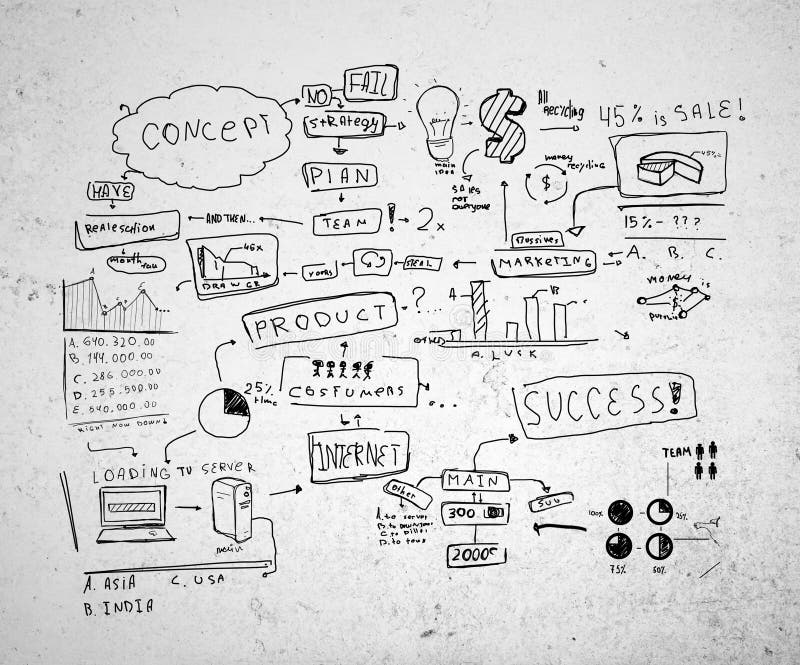 FAIL
NO
CONCEPT
STRATEGY
main
IDEA
All
Recycling
45% is SALE!
45%
PLAN
money
recycling
$
SALES
not
everyone
HAVE
Realesction
AND THEN...
TEAM ! 2x
15% - ???
Massives
MARKETING
A. B. C.
month
45%
DRAW GR
STEAL
MONEY is
$
A
B
C
A
PRODUCT ?...
OTHER
A. LUCK
A. 640.320.00
B. 144.000.00
C. 286 000.00
D. 255.500.00
E. 540.000.00
RIGHT NOW DOWN!
25%
time
COSTUMERS
...
SUCCESS!
INTERNET
LOADING TV SERVER
Other
MAIN
SUG
TEAM
A. to server
D. to tons
300
2000$
100%
25%
75%
50%
main
A. ASIA C. USA
B. INDIA